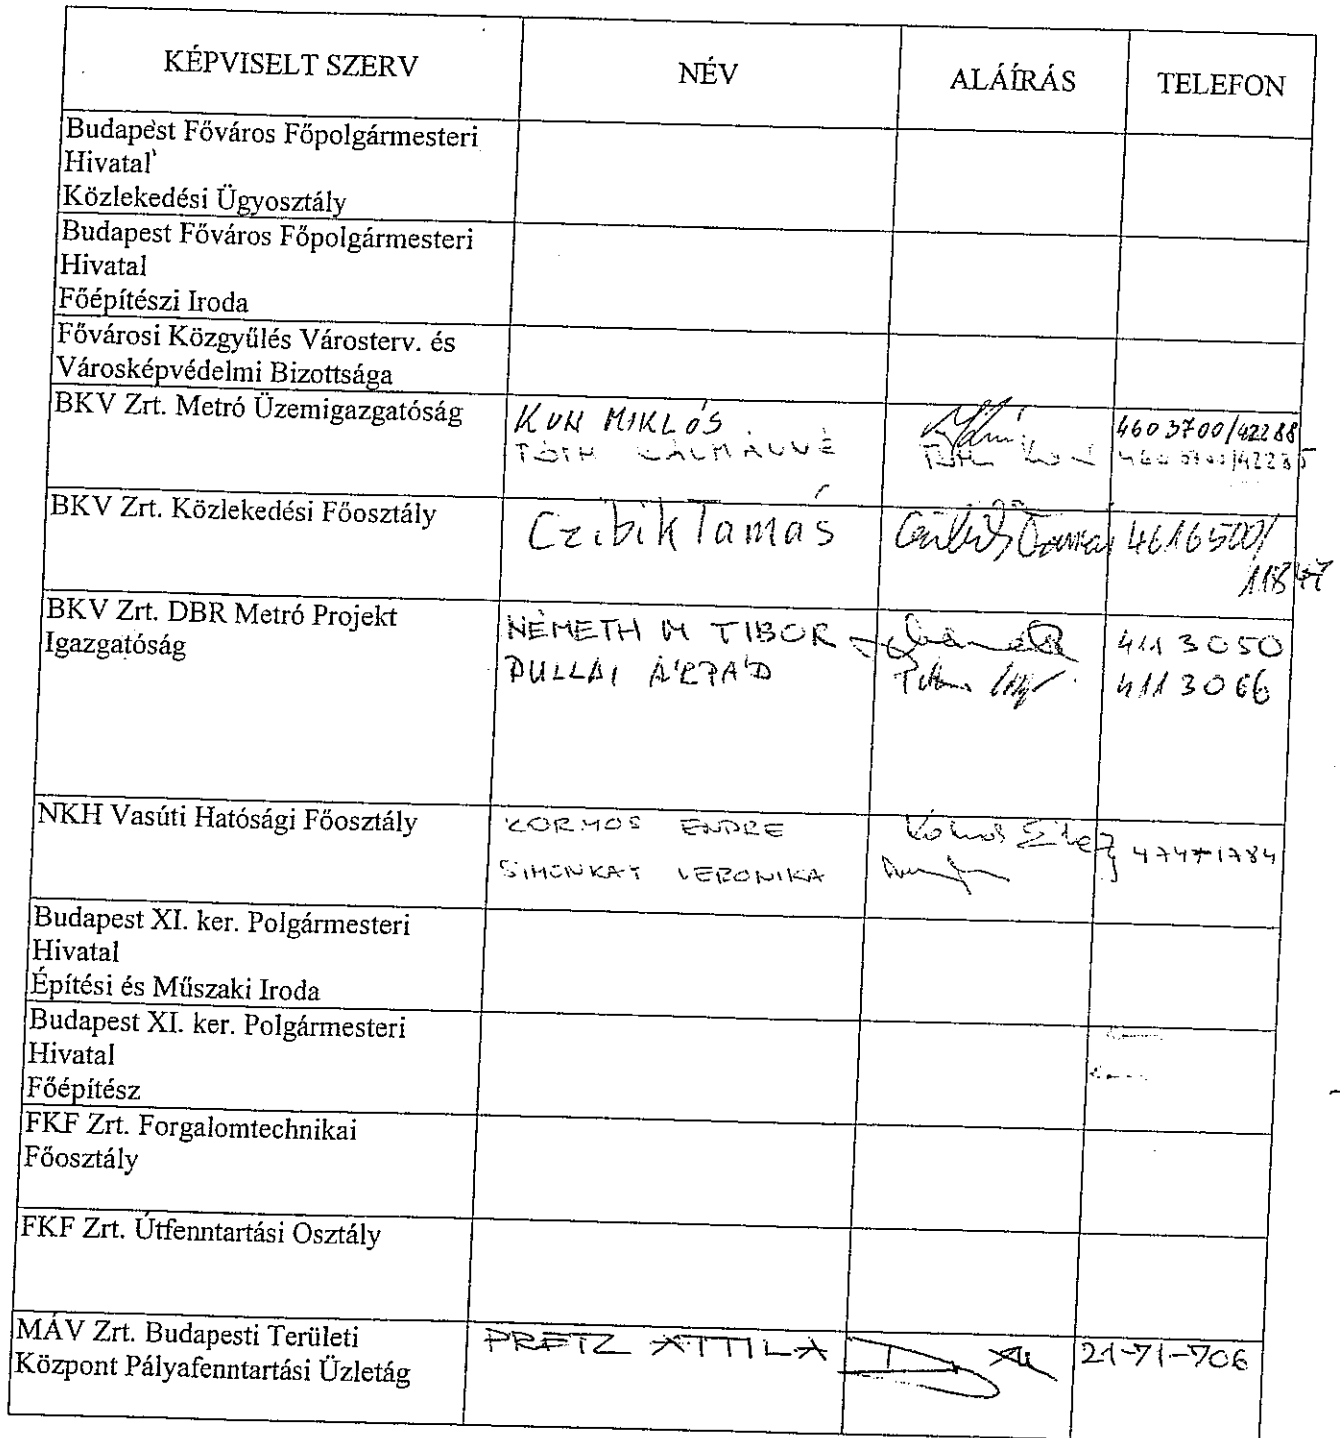 KÉPVISELT SZERV NÉV ALÁÍRÁS TELEFON
Budapest Főváros Főpolgármesteri
Hivatal
Közlekedési Ügyosztály
Budapest Főváros Főpolgármesteri
Hivatal
Főépítészi Iroda
Fővárosi Közgyűlés Városterv. és
Városképvédelmi Bizottsága
BKV Zrt. Metró Üzemigazgatóság KUN MIKLÓS 4603700/42288
TÓTH KÁLMÁNNÉ
BKV Zrt. Közlekedési Főosztály Czibik Tamás Czibik Tamás 4616500/
11847
BKV Zrt. DBR Metró Projekt NÉMETH M TIBOR 411 3050
Igazgatóság PULLAI ÁRPÁD 411 3066
NKH Vasúti Hatósági Főosztály KORMOS ENDRE Kormos Endre
SIMONKAY VERONIKA
Budapest XI. ker. Polgármesteri
Hivatal
Építési és Műszaki Iroda
Budapest XI. ker. Polgármesteri
Hivatal
Főépítész
FKF Zrt. Forgalomtechnikai
Főosztály
FKF Zrt. Útfenntartási Osztály
MÁV Zrt. Budapesti Területi PRETZ ATTILA 21-71-706
Központ Pályafenntartási Üzletág